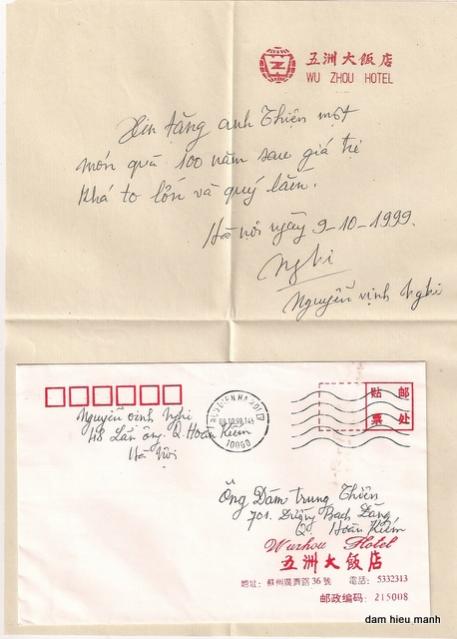 五洲大飯店
WU ZHOU HOTEL
Xin tặng anh Thiện một
món quà 100 năm sau giá trị
khá to lớn và quý lắm.
Hà nội ngày 9-10-1999.
Nghi
Nguyễn vịnh Nghi
Nguyễn vịnh Nghi
48 Lãn ông. Q. Hoàn Kiếm
Hà Nội
10000
贴 邮
票 处
Ông Đàm trung Thiện
701. Đường Bạch Đằng
Q. Hoàn Kiếm
Wuzhou Hotel
五洲大飯店
地址：蘇州廣濟路36號 電話：5332313
邮政编码：215008
dam hieu manh